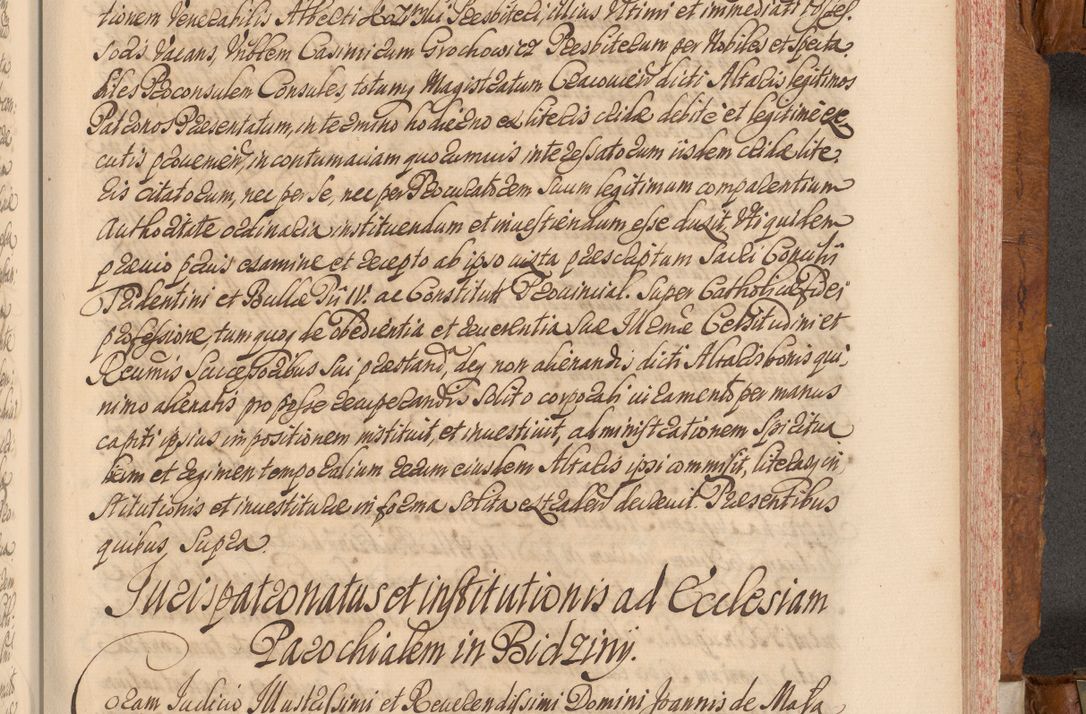 tionem Venerabilis Alberti Kozmski Presbiteri, illius Ultimi et immediati Posses
soris Vacans, Nobilem Casimirum Grochowicz Presbiterum per Nobiles et Specta
biles Proconsulem Consules, totumq Magistratum Cracovien dicti Altaris legitimos
Patronos Præsentatum, in termino hodierno ex literis cridæ debitè et legitimè ex
cutis provenien, in contumaciam quorumvis interessatorum iisdem cridæ lite
ris citatorum, nec per se, nec per Procuratorem suum legitimum comparentium
Authoritate ordinaria instituendum et investiendum esse duxit, Uti quidem
prævio prius examine et recepto ab ipso iuxta præscriptum Sacri Concilii
Tridentini et Bullæ Pii IV. ac Constitut Provincial. Super Catholicæ Fidei
professione, tumquoq de obedientia et reverentia Suæ Illmæ Celsitudini et
Reumis Successoribus Sui præstand, deq non alienandis dicti Altaris bonis qui
nimo alienatis pro posse recuperandis solito corporali iuramento per manus
capiti ipsius impositionem instituit, et investivit, administrationem Spiritua
lium et regimen temporalium rerum eiusdem Altaris ipsi commisit, literasq in
stitutionis et investituræ in forma Solita extradend decrevit. Præsentibus
quibus Supra.
Jurispatronatus et institutionis ad Ecclesiam
Parochialem in Bidziny.
Coram Judicio Illustrissimi et Reverendissimi Domini Joannis de Mała